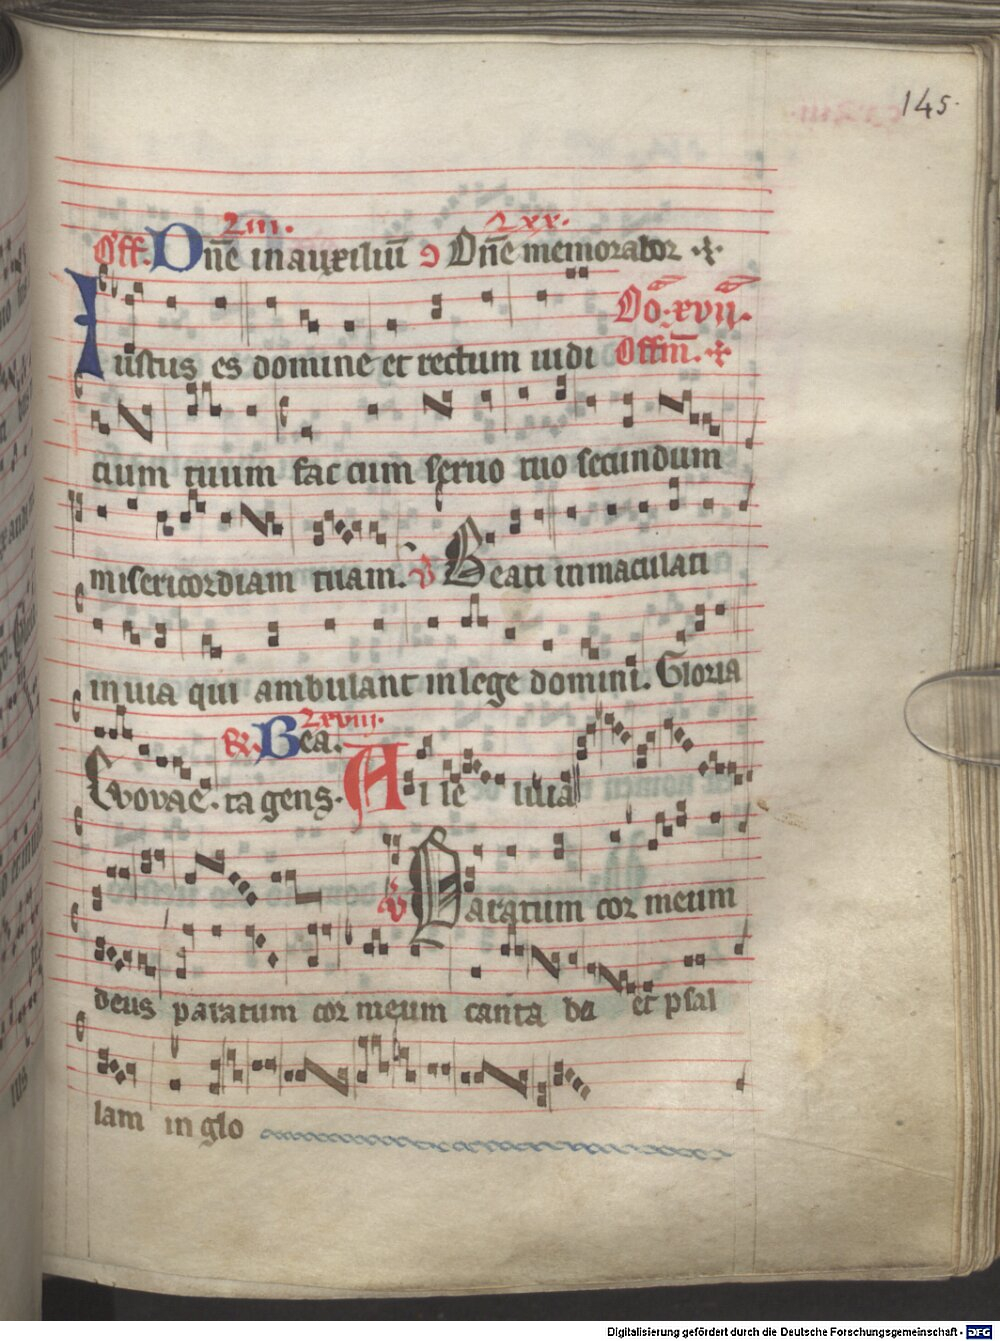 145.
Lııı. Lxx.
Off. Dn̄e in auxiliū ↄ Dn̄e memorabor
Do. xvıı.
Iustus es domine et rectum iudi Offm̄.
cium tuum fac cum seruo tuo secundum
misericordiam tuam. V Beati inmaculati
in uia qui ambulant in lege domini. Gloria
Lxvııı.
Euouae. ta gens. R. Bea. Al le luia
V Paratum cor meum
deus paratum cor meum canta bo et psal
lam in glo
Digitalisierung gefördert durch die Deutsche Forschungsgemeinschaft - DFG